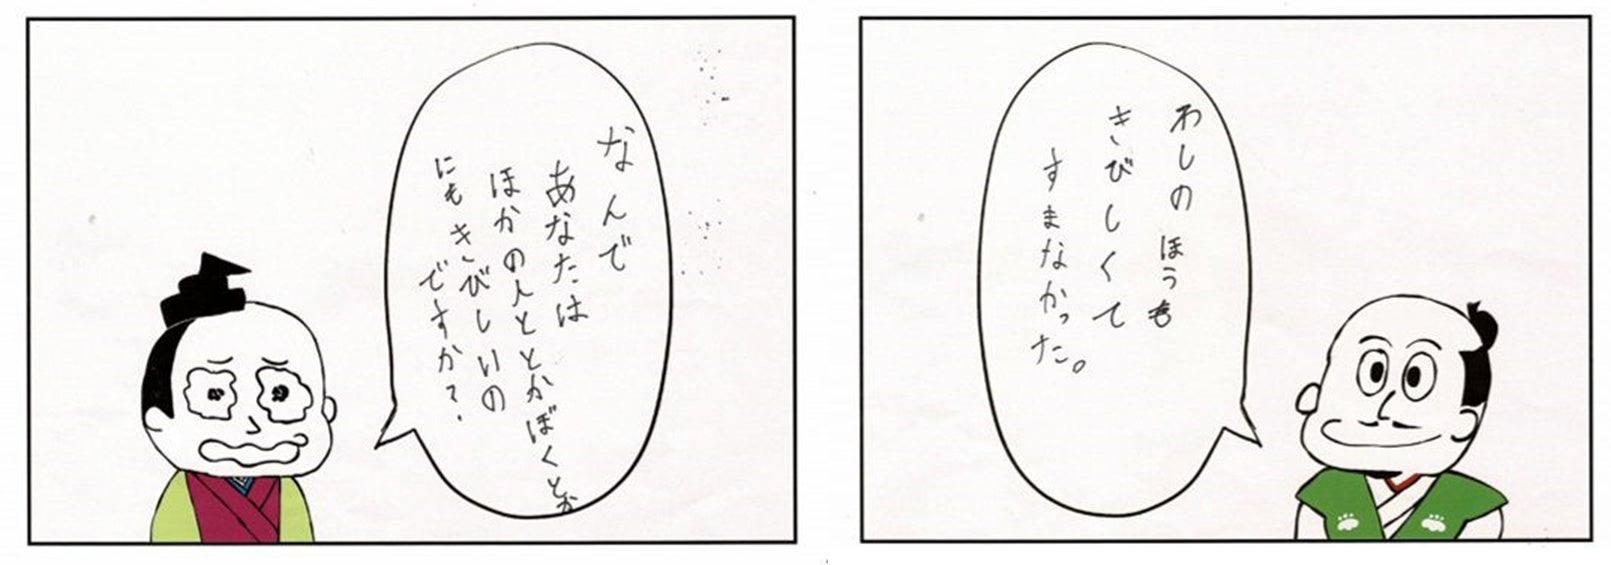 なんで
あなたは
ほかの人ととかぼくとか
にもきびしいの
ですか？
わしのほうも
きびしくて
すまなかった。